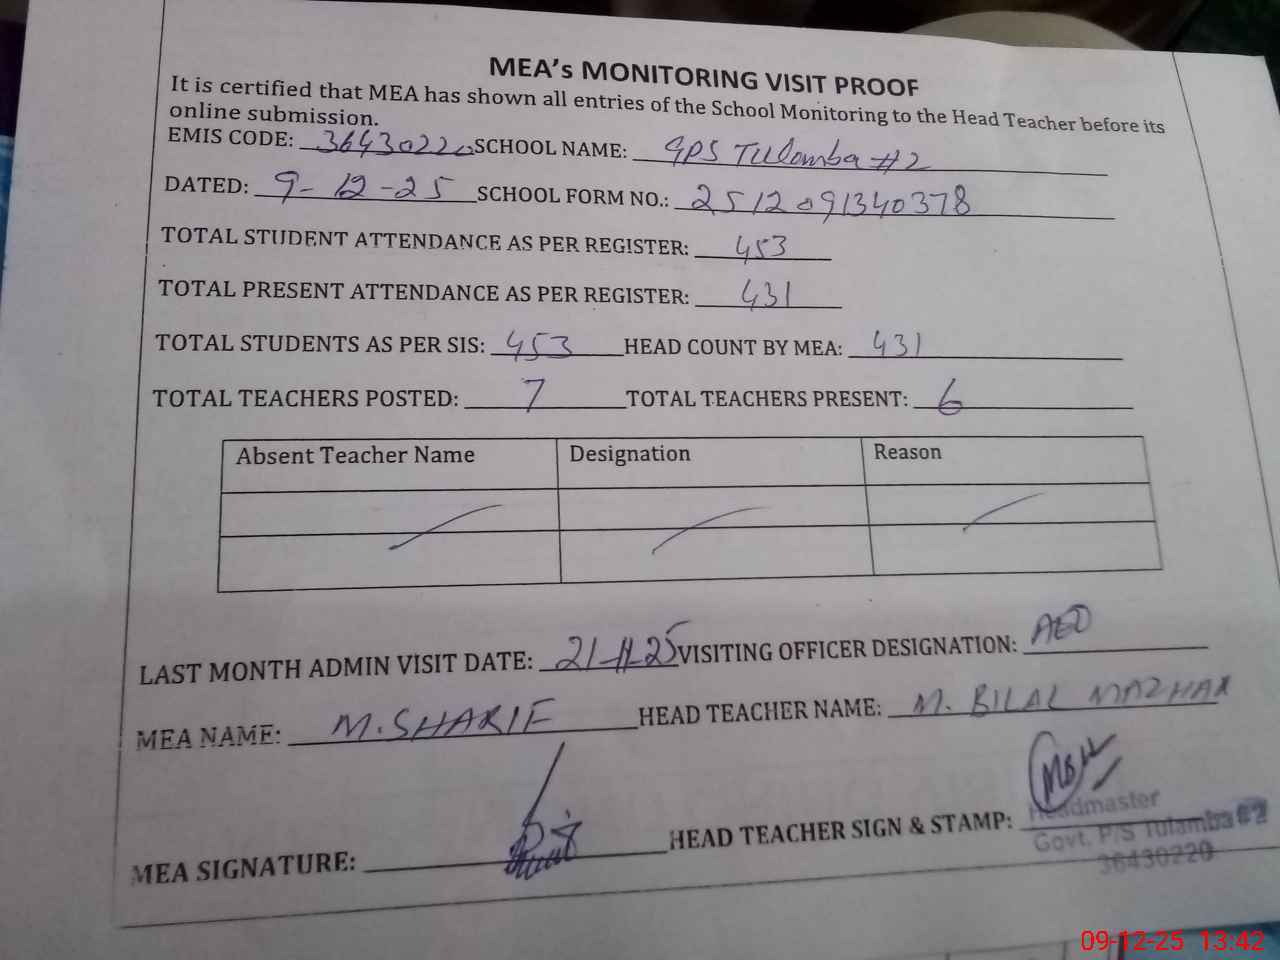 MEA's MONITORING VISIT PROOF
It is certified that MEA has shown all entries of the School Monitoring to the Head Teacher before its
online submission.
EMIS CODE: 36430220 SCHOOL NAME: GPS Tulamba #2
DATED: 9-12-25 SCHOOL FORM NO.: 2512091340378
TOTAL STUDENT ATTENDANCE AS PER REGISTER: 453
TOTAL PRESENT ATTENDANCE AS PER REGISTER: 431
TOTAL STUDENTS AS PER SIS: 453 HEAD COUNT BY MEA: 431
TOTAL TEACHERS POSTED: 7 TOTAL TEACHERS PRESENT: 6
Absent Teacher Name Designation Reason
LAST MONTH ADMIN VISIT DATE: 21-11-25 VISITING OFFICER DESIGNATION: AEO
MEA NAME: M.SHARIF HEAD TEACHER NAME: M. BILAL MAZHAR
MEA SIGNATURE: HEAD TEACHER SIGN & STAMP:
Headmaster
Govt. P/S Tulamba #2
36430220
09-12-25 13:42